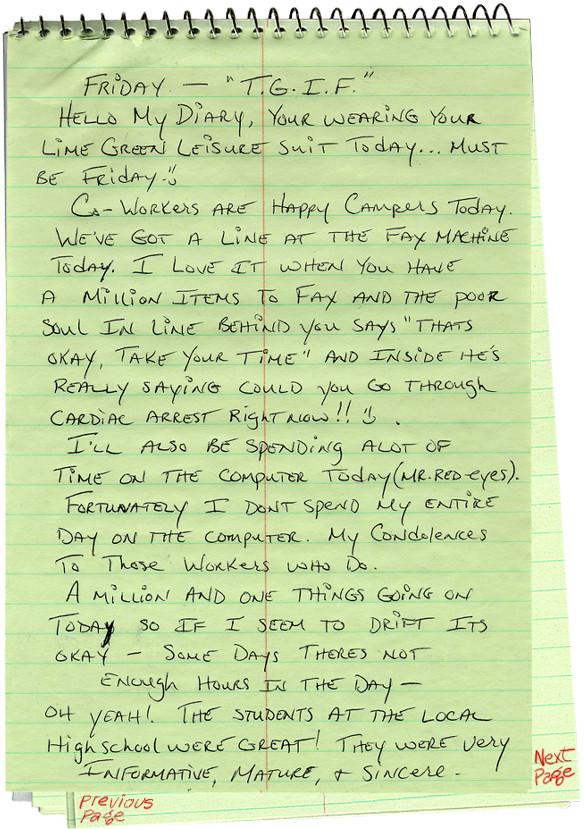 FRiDAY — "T.G.I.F."
HELLO MY DiARY, YOUR WEARING YOUR
LiME GREEN LEISURE SUIT TODAY... MUST
BE FRiDAY.
CO-WORKERS ARE HAPPY CAMPERS TODAY.
WE'VE GOT A LINE AT THE FAX MACHINE
TODAY. I LOVE IT WHEN YOU HAVE
A MILLION ITEMS TO FAX AND THE POOR
SOUL IN LINE BEHIND YOU SAYS "THATS
OKAY, TAKE YOUR TIME" AND INSIDE HE'S
REALLY SAYING COULD YOU GO THROUGH
CARDIAC ARREST RIGHT NOW!! .
I'LL ALSO BE SPENDING ALOT OF
TIME ON THE COMPUTER TODAY (MR. RED-EYES).
FORTUNATELY I DONT SPEND MY ENTIRE
DAY ON THE COMPUTER. MY CONDOLENCES
TO THOSE WORKERS WHO DO.
A MILLION AND ONE THINGS GOING ON
TODAY SO IF I SEEM TO DRIFT ITS
OKAY — SOME DAYS THERES NOT
ENOUGH HOURS IN THE DAY —
OH YEAH! THE STUDENTS AT THE LOCAL
HIGH SCHOOL WERE GREAT! THEY WERE VERY
INFORMATIVE, MATURE, + SINCERE.
Next
Page
Previous
Page